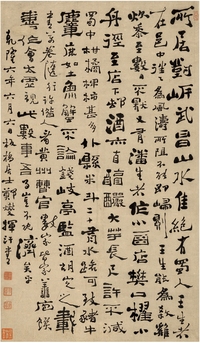 所居對岸武昌山水佳絕有蜀人王生者
在邑中往往為風濤所阻不能即歸王生能為殺雞
炊黍至數日不厭又有潘生者作小酒店樊口棹小
舟徑至店下邨酒亦自醇釅大芋長尺許不減
蜀中柑橘椑柿甚多外縣米斗二十有水路可致豬牛
麞鹿如土魚蟹不論錢岐亭監酒胡定之載
書萬卷隨行喜借人看黃州曹官數家皆善庖饌
喜作會太虛視此數事吾事豈不濟矣乎
乾隆六年六月六日板橋居士鄭燮揮汗書